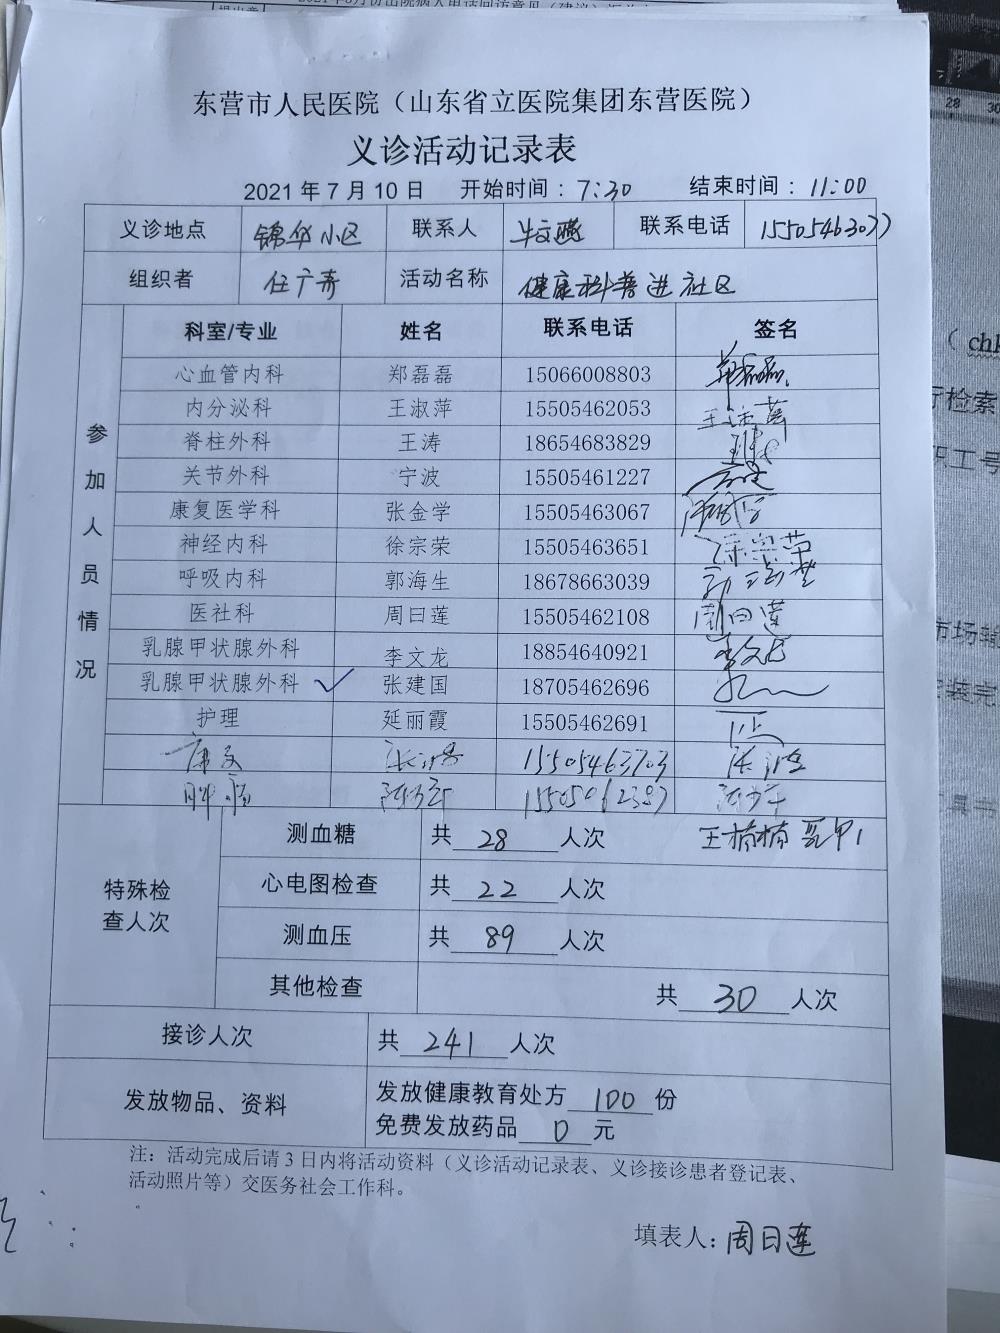 东营市人民医院（山东省立医院集团东营医院）
义诊活动记录表
2021 年 7 月 10 日 开始时间：7:30 结束时间：11:00
义诊地点 锦华小区 联系人 牛文燕 联系电话 15505463077
组织者 任广寿 活动名称 健康科普进社区
参加人员情况
科室/专业 姓名 联系电话 签名
心血管内科 郑磊磊 15066008803 郑磊磊
内分泌科 王淑萍 15505462053 王淑萍
脊柱外科 王涛 18654683829 王涛
关节外科 宁波 15505461227
康复医学科 张金学 15505463067
神经内科 徐宗荣 15505463651 徐宗荣
呼吸内科 郭海生 18678663039
医社科 周曰莲 15505462108 周曰莲
乳腺甲状腺外科 李文龙 18854640921 李文龙
乳腺甲状腺外科 ✓ 张建国 18705462696
护理 延丽霞 15505462691
康复 15505463703
肿瘤 15505062387
特殊检查人次
测血糖 共 28 人次 王楠楠
心电图检查 共 22 人次
测血压 共 89 人次
其他检查 共 30 人次
接诊人次 共 241 人次
发放物品、资料 发放健康教育处方 100 份
免费发放药品 0 元
注：活动完成后请 3 日内将活动资料（义诊活动记录表、义诊接诊患者登记表、
活动照片等）交医务社会工作科。
填表人：周曰莲
28 30
（chk
行检索
职工号
市场
安装完